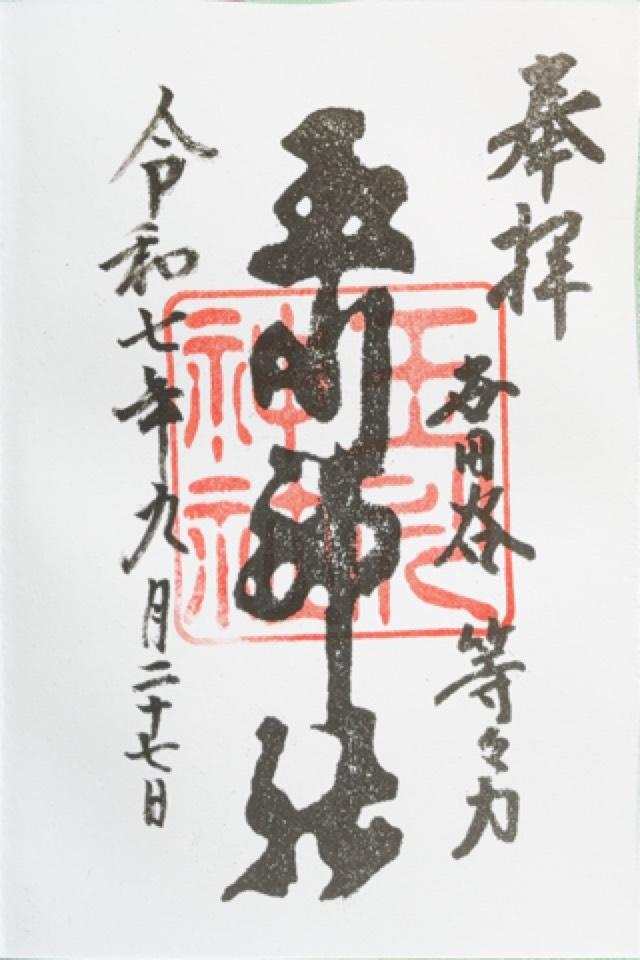 奉拝
世田谷 等々力
玉川神社
玉川神社
令和七年九月二十七日